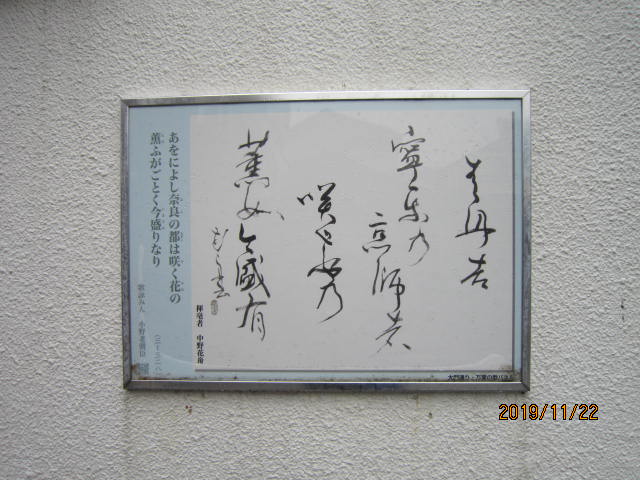 青丹吉
寧楽乃
京師者
咲花乃
薫如今盛有
揮毫者 中野花
あをによし奈良の都は咲く花の
薫ふがごとく今盛りなり
歌詠み人 小野老朝臣
(三-三二八)
大門通り・万葉の歌パネル
2019/11/22